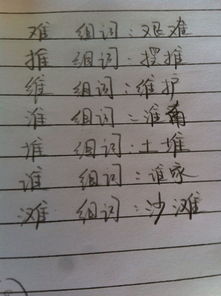 难 组词:艰难
推 组词:推
维 组词:维护
淮 组词:淮南
堆 组词:土堆
谁 组词:谁家
滩 组词:沙滩